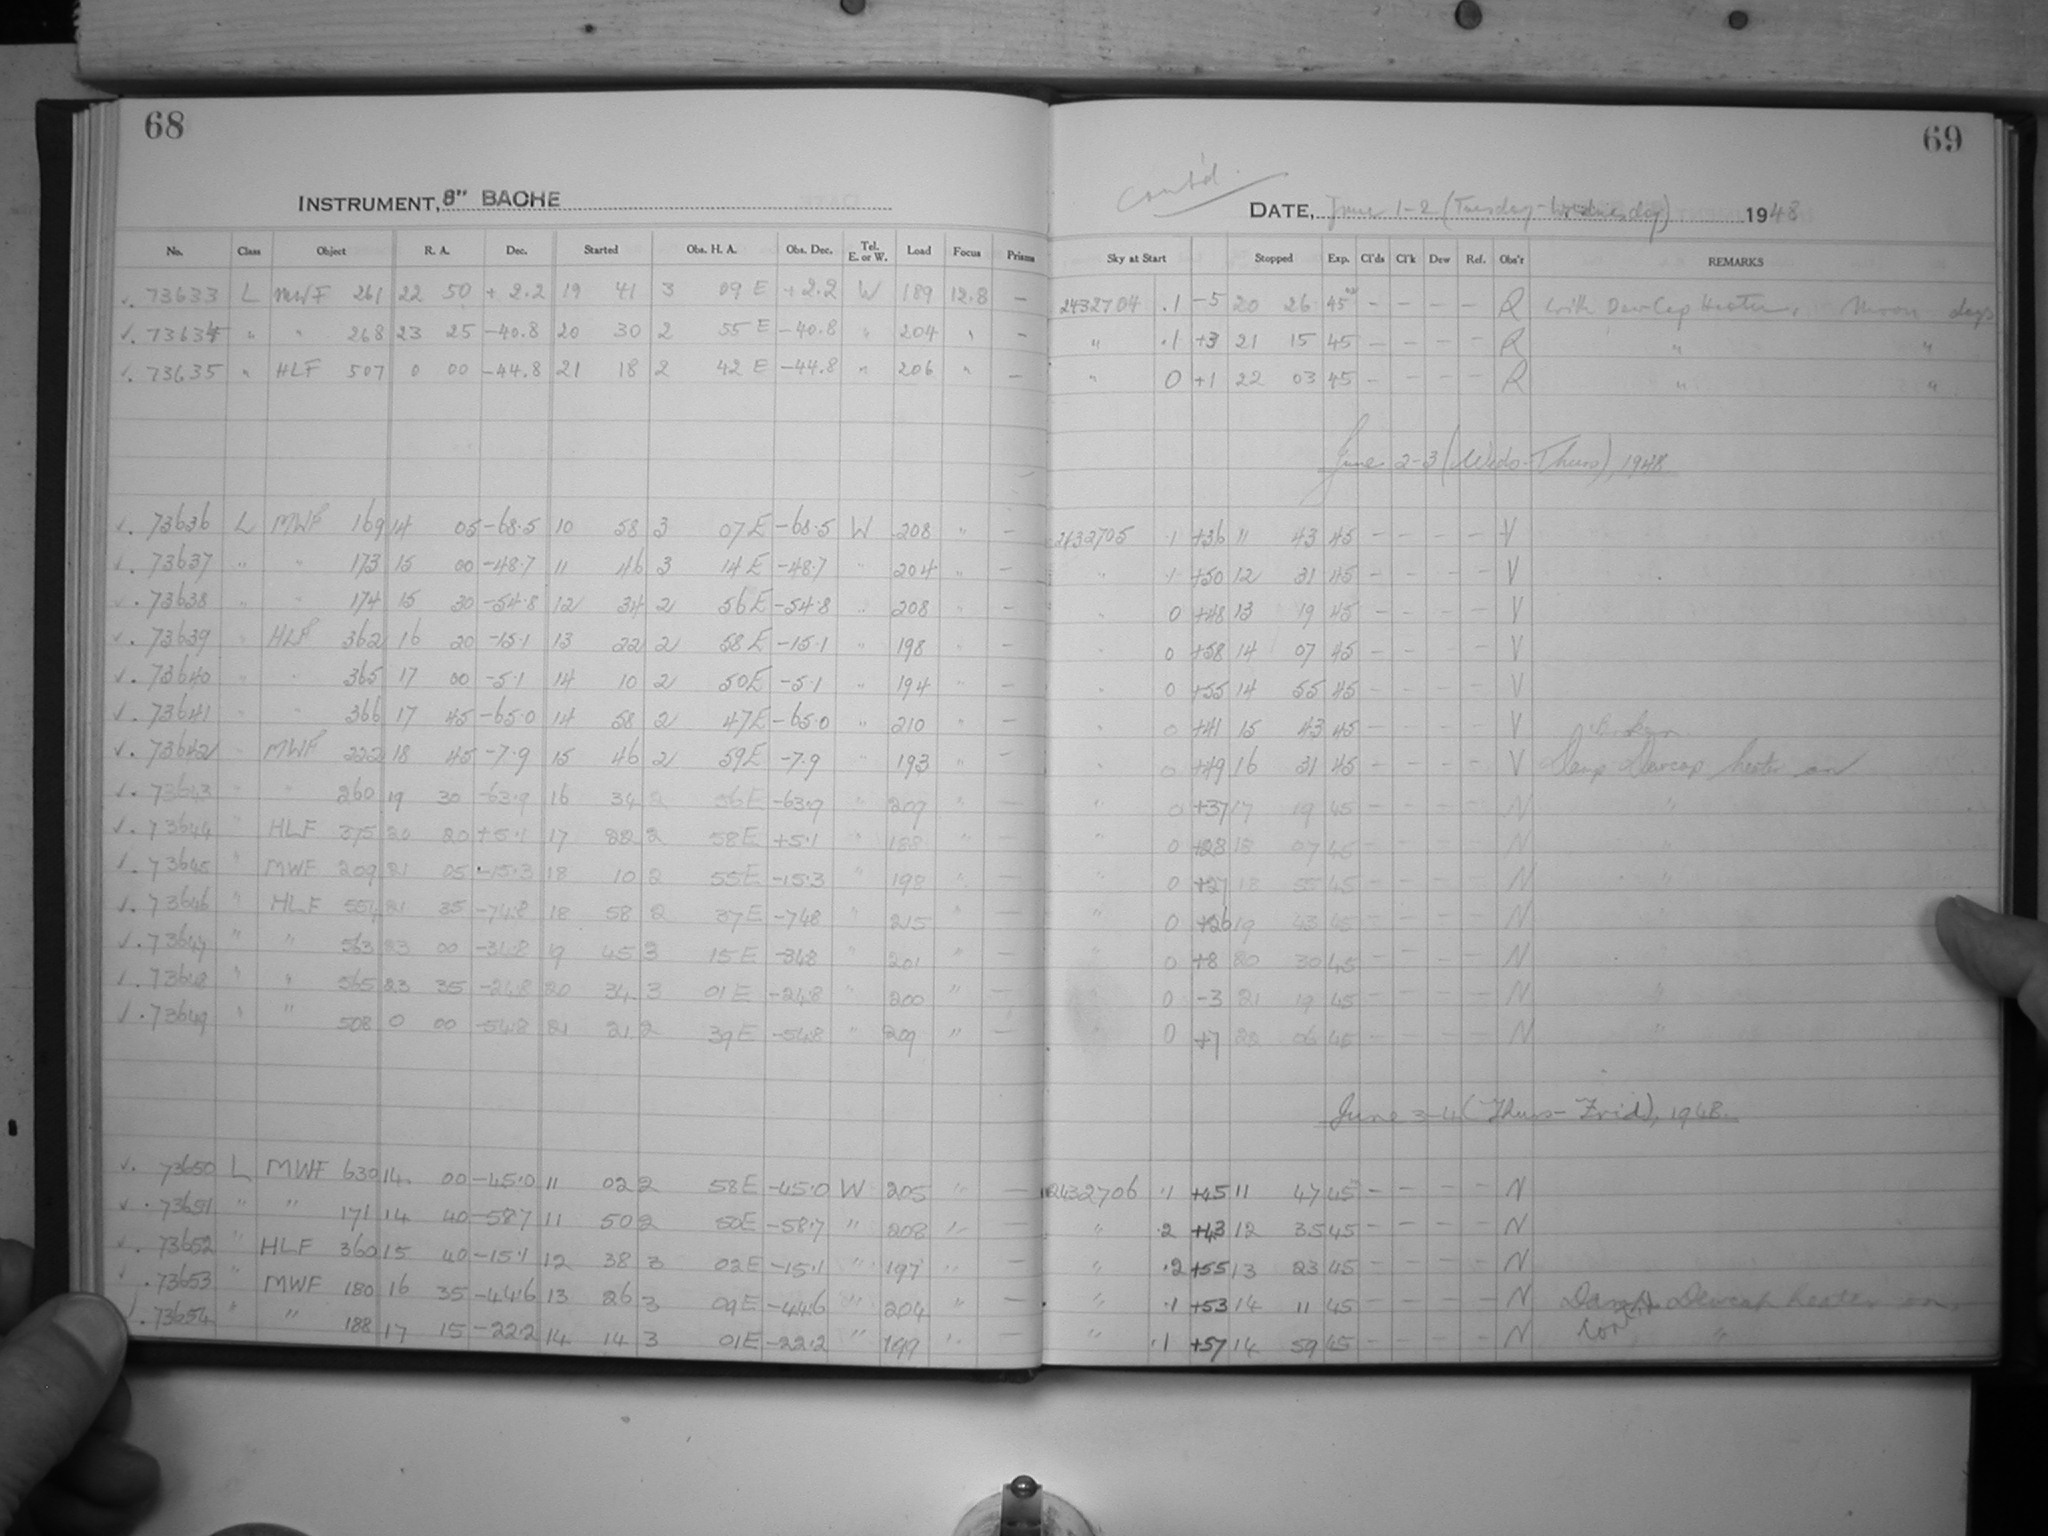 68
INSTRUMENT, 8" BACHE
No. Class Object R. A. Dec. Started Obs. H. A. Obs. Dec. Tel. E. or W. Load Focus Prisms
√. 73633 L MWF 261 22 50 + 2.2 19 41 3 09 E + 2.2 W 189 12.8 —
√. 73634 " " 268 23 25 -40.8 20 30 2 55 E -40.8 " 204 " —
√. 73635 " HLF 507 0 00 -44.8 21 18 2 42 E -44.8 " 206 " —
√. 73636 L MWF 169 14 05 -68.5 10 58 3 07 E -68.5 W 208 " —
√. 73637 " " 173 15 00 -48.7 11 46 3 14 E -48.7 " 204 " —
√. 73638 " " 174 15 30 -54.8 12 34 2 56 E -54.8 " 208 " —
√. 73639 " HLF 362 16 20 -15.1 13 22 2 58 E -15.1 " 198 " —
√. 73640 " " 365 17 00 -5.1 14 10 2 50 E -5.1 " 194 " —
√. 73641 " " 366 17 45 -65.0 14 58 2 47 E -65.0 " 210 " —
√. 73642 " MWF 222 18 45 -7.9 15 46 2 59 E -7.9 " 193 " —
√. 73643 " " 260 19 30 -63.9 16 34 2 56 E -63.9 " 209 " —
√. 73644 " HLF 375 20 20 +5.1 17 22 2 58 E +5.1 " 188 " —
√. 73645 " MWF 209 21 05 -15.3 18 10 2 55 E -15.3 " 198 " —
√. 73646 " HLF 554 21 35 -74.8 18 58 2 37 E -74.8 " 215 " —
√. 73647 " " 563 23 00 -34.8 19 45 3 15 E -34.8 " 201 " —
√. 73648 " " 565 23 35 -24.8 20 34 3 01 E -24.8 " 200 " —
√. 73649 " " 508 0 00 -54.8 21 21 2 39 E -54.8 " 209 " —
√. 73650 L MWF 630 14 00 -45.0 11 02 2 58 E -45.0 W 205 " —
√. 73651 " " 171 14 40 -58.7 11 50 2 50 E -58.7 " 208 " —
√. 73652 " HLF 360 15 40 -15.1 12 38 3 02 E -15.1 " 197 " —
√. 73653 " MWF 180 16 35 -44.6 13 26 3 09 E -44.6 " 204 " —
√. 73654 " " 188 17 15 -22.2 14 14 3 01 E -22.2 " 199 " —
69
Cont'd.
DATE, June 1-2 (Tuesday-Wednesday) 1948
Sky at Start Stopped Exp. Cl'ds Cl'k Dew Ref. Obs'r REMARKS
2432704 .1 -5 20 26 45 — — — — R With DewCap Heater,
" .1 +3 21 15 45 — — — — R " "
" 0 +1 22 03 45 — — — — R " "
June 2-3 (Weds-Thurs), 1948
2432705 .1 +36 11 43 45 — — — — V
" .1 +50 12 31 45 — — — — V
" 0 +48 13 19 45 — — — — V
" 0 +58 14 07 45 — — — — V
" 0 +55 14 55 45 — — — — V
" 0 +41 15 43 45 — — — — V
" 0 +49 16 31 45 — — — — V Damp Dewcap heater on
" 0 +37 17 19 45 — — — — N "
" 0 +28 18 07 45 — — — — N "
" 0 +27 18 55 45 — — — — N "
" 0 +26 19 43 45 — — — — N "
" 0 +8 20 30 45 — — — — N "
" 0 -3 21 19 45 — — — — N "
" 0 +7 22 06 45 — — — — N "
June 3-4 (Thurs-Frid), 1948.
2432706 .1 +45 11 47 45 — — — — N
" .2 +43 12 35 45 — — — — N
" .2 +55 13 23 45 — — — — N
" .1 +53 14 11 45 — — — — N Damp Dewcap heater on.
" .1 +57 14 59 45 — — — — N Cont'd "